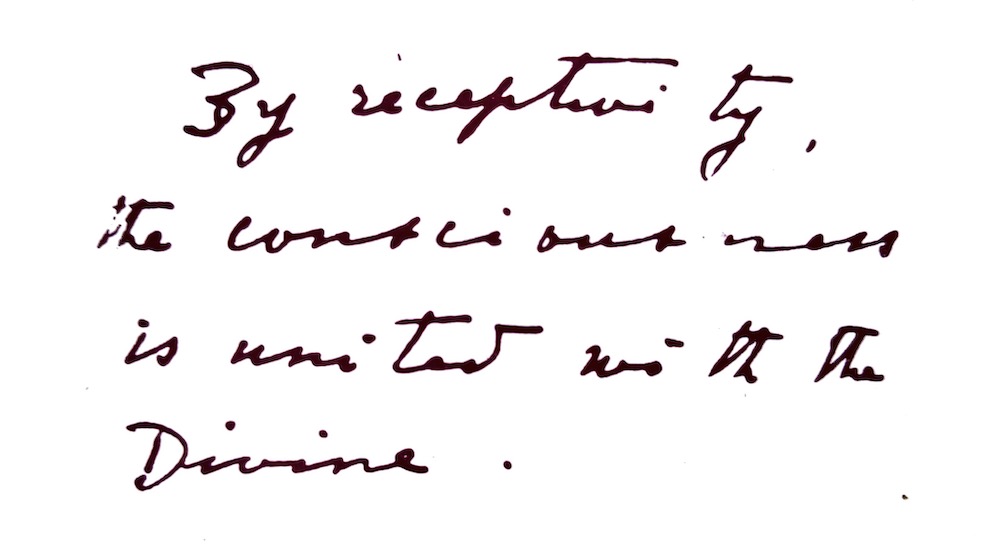 By receptivity,
the consciousness
is united with the
Divine.